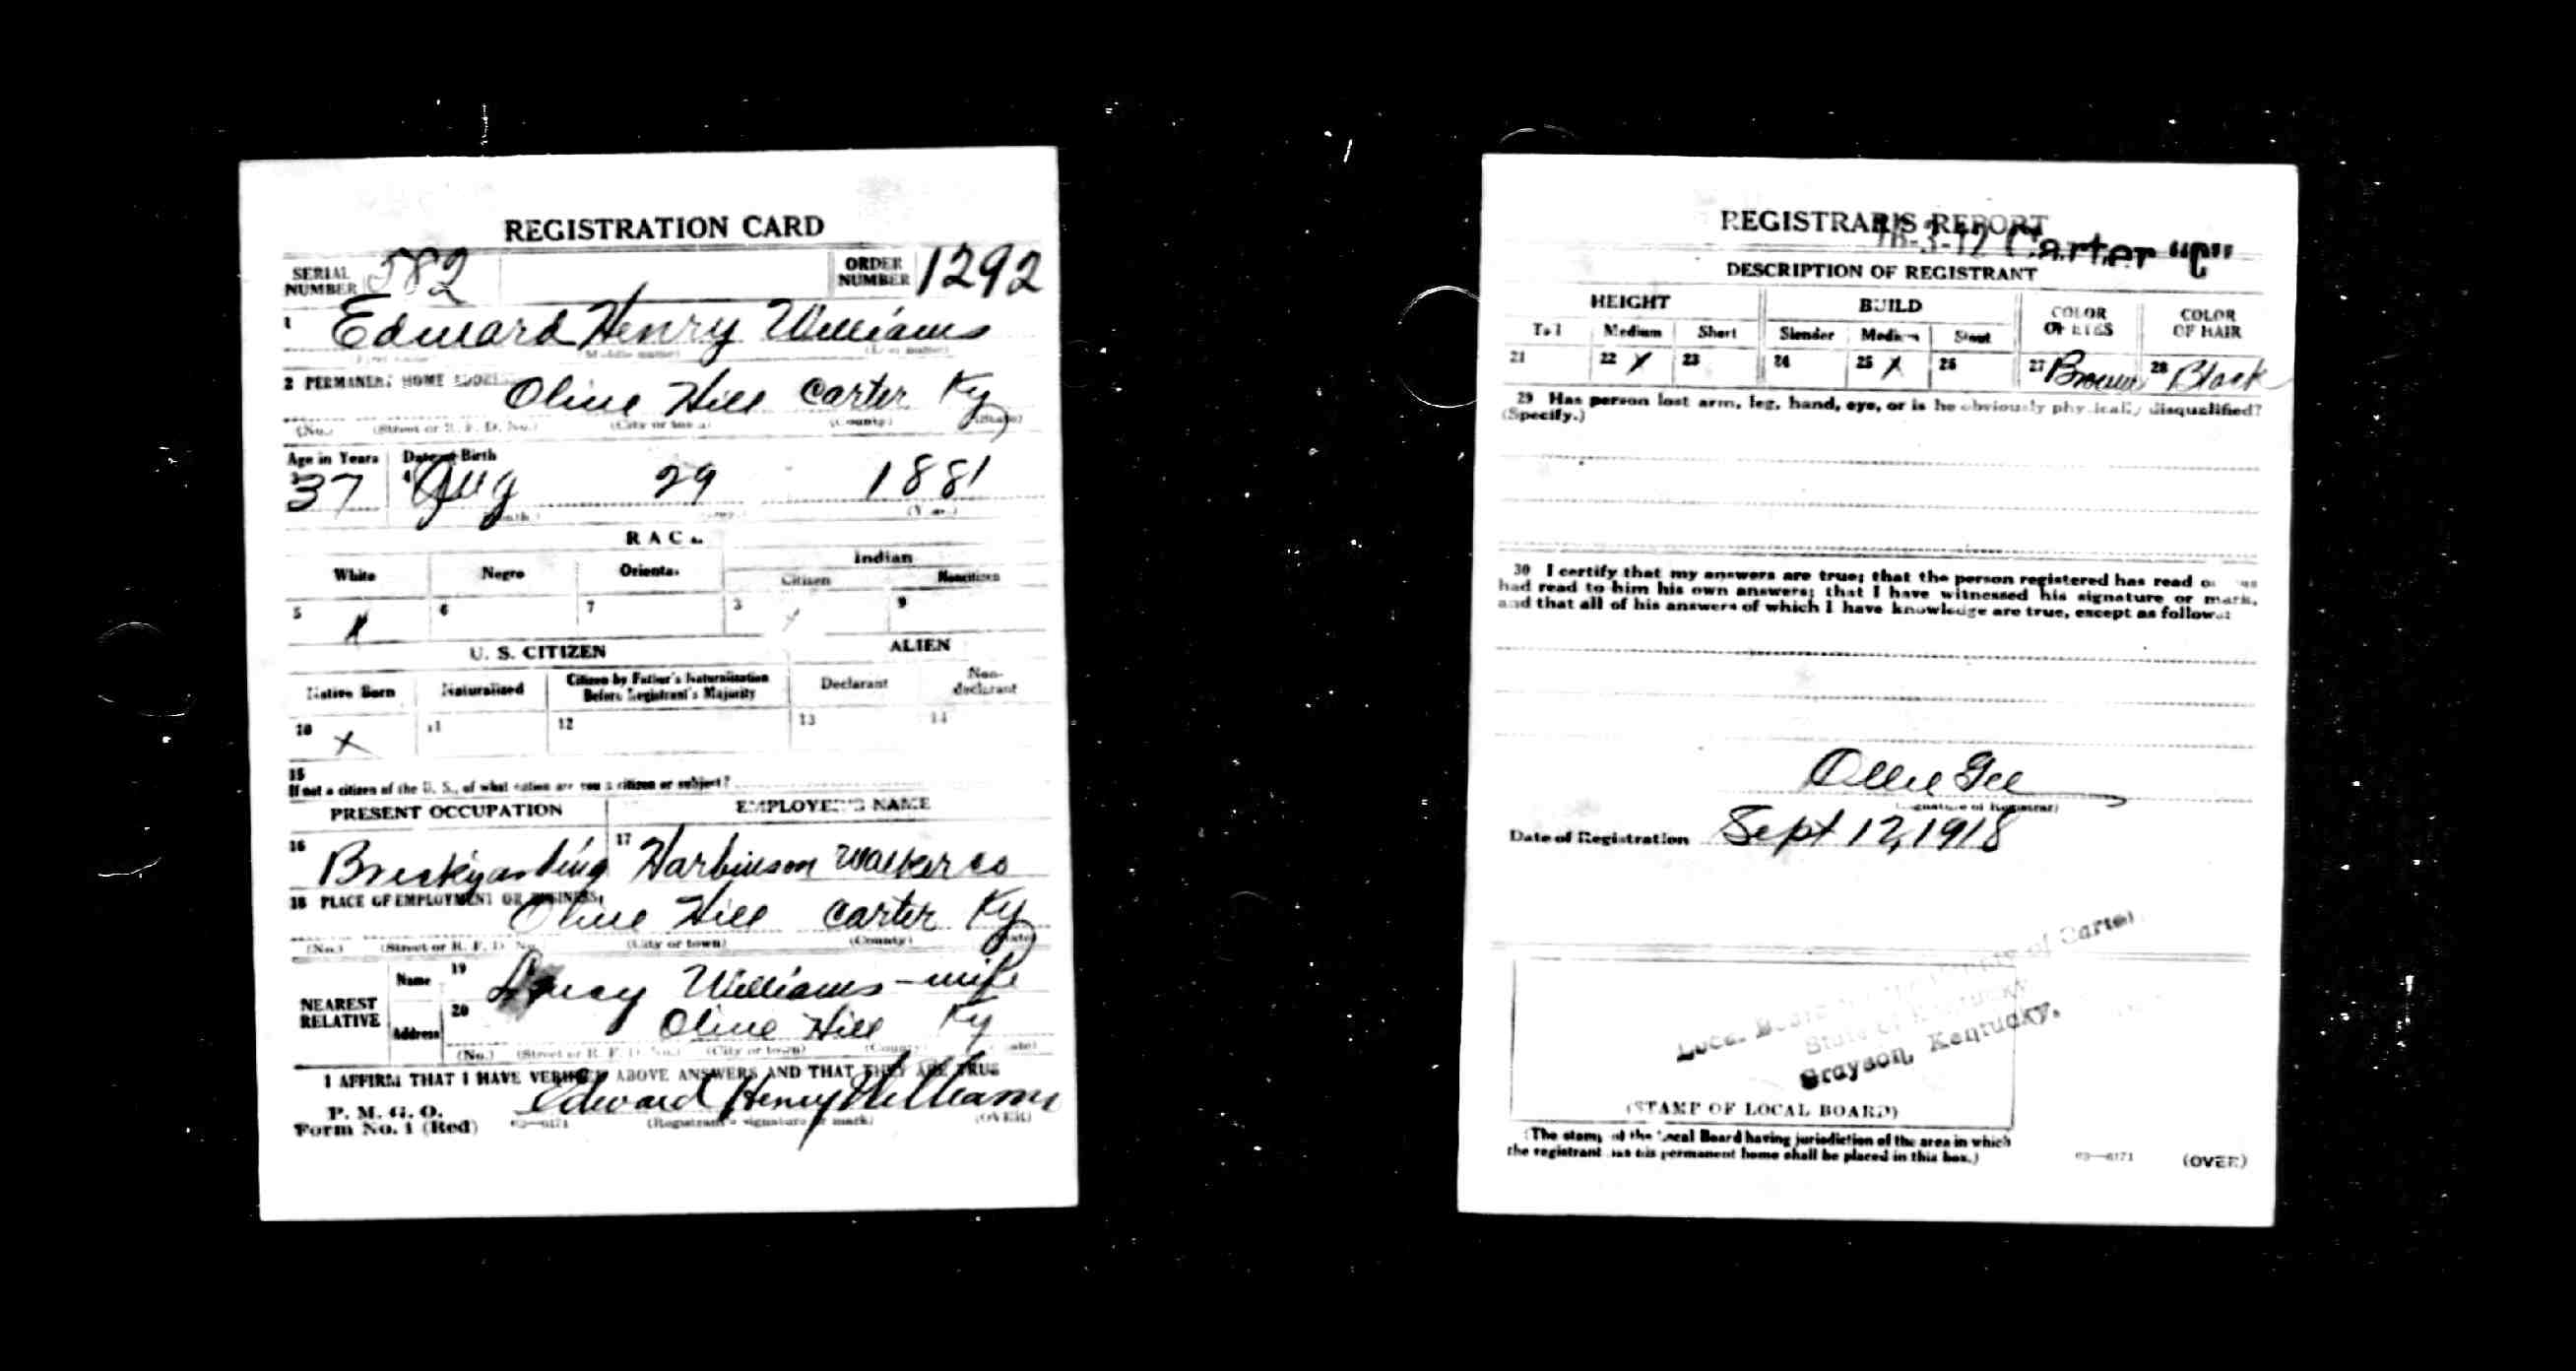 REGISTRATION CARD
SERIAL NUMBER 582 ORDER NUMBER 1292
1 Edward Henry Williams
(Middle name) (Last name)
2 PERMANENT HOME ADDRESS Olive Hill Carter Ky
(No.) (Street or R. F. D. No.) (City or town) (County) (State)
Age in Years Date of Birth
37 Aug 29 1881
(Month.) (Day.) (Year.)
RACE
White Negro Oriental Indian
Citizen Noncitizen
5 X 6 7 8 9
U. S. CITIZEN ALIEN
Native Born Naturalized Citizen by Father's Naturalization Before Registrant's Majority Declarant Non-declarant
10 X 11 12 13 14
15
If not a citizen of the U. S., of what nation are you a citizen or subject?
PRESENT OCCUPATION EMPLOYER'S NAME
16 Brickyarding 17 Harbinson Walker Co
18 PLACE OF EMPLOYMENT OR BUSINESS
Olive Hill Carter Ky
(No.) (Street or R. F. D. No.) (City or town) (County) (State)
NEAREST RELATIVE
Name 19 Williams - wife
Address 20 Olive Hill Ky
(No.) (Street or R. F. D. No.) (City or town) (County) (State)
I AFFIRM THAT I HAVE VERIFIED ABOVE ANSWERS AND THAT THEY ARE TRUE
P. M. G. O.
Form No. 1 (Red) 03—6171 Edward Henry Williams
(Registrant's signature or mark) (OVER)
REGISTRAR'S REPORT
16-3-12 Carter "C"
DESCRIPTION OF REGISTRANT
HEIGHT BUILD COLOR OF EYES COLOR OF HAIR
Tall Medium Short Slender Medium Stout
21 22 X 23 24 25 X 26 27 Brown 28 Black
29 Has person lost arm, leg, hand, eye, or is he obviously physically disqualified?
(Specify.)
30 I certify that my answers are true; that the person registered has read or has
had read to him his own answers; that I have witnessed his signature or mark,
and that all of his answers of which I have knowledge are true, except as follows:
Ollie Gee
(Signature of Registrar)
Date of Registration Sept 12, 1918
Local Board County of Carter
State of Kentucky
Grayson, Kentucky.
(STAMP OF LOCAL BOARD)
(The stamp of the Local Board having jurisdiction of the area in which
the registrant has his permanent home shall be placed in this box.)
03—6171 (OVER)